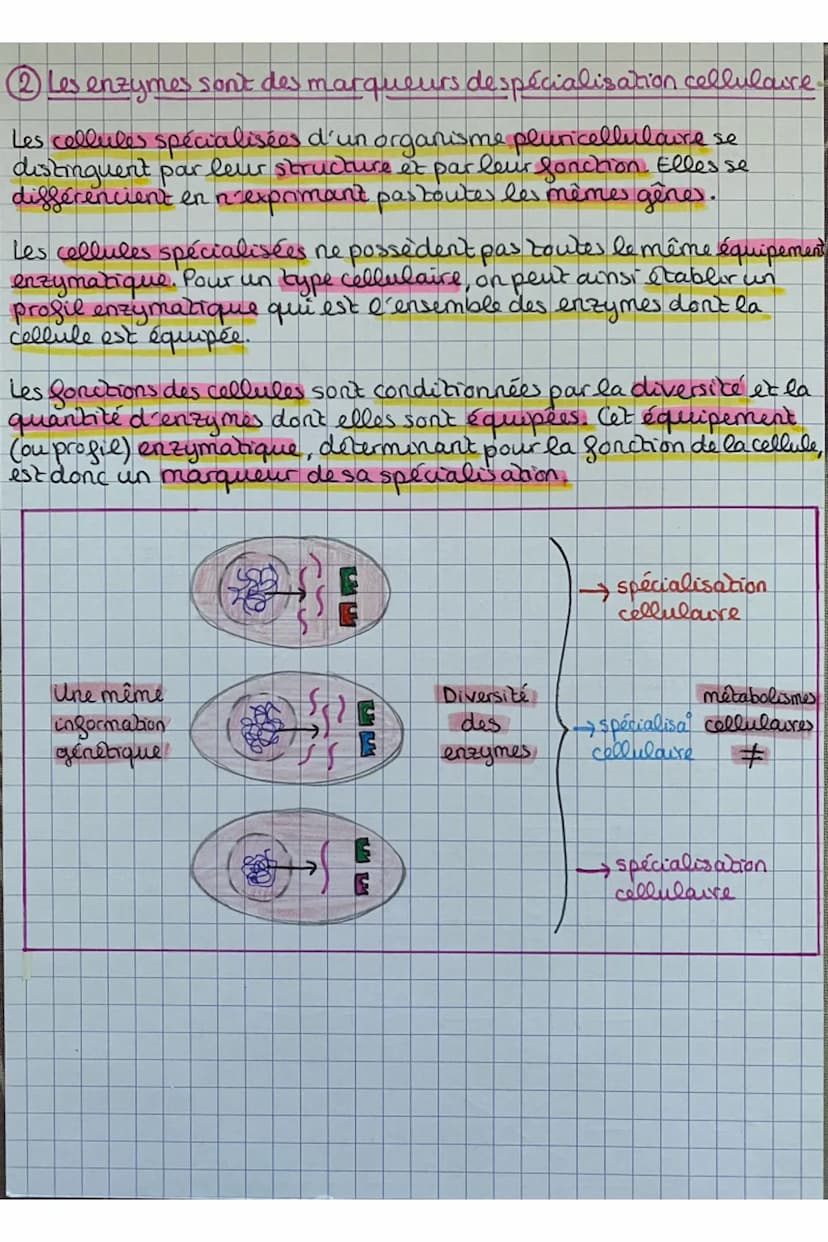 ② Les enzymes sont des marqueurs de spécialisation cellulaire
Les cellules spécialisées d'un organisme pluricellulaire se
distinguent par leur structure et par leur fonction. Elles se
différencient en n'exprimant pas toutes les mêmes gênes.
Les cellules spécialisées ne possèdent pas toutes le même équipement
enzymatique. Pour un type cellulaire, on peut ainsi établir un
profil enzymatique qui est l'ensemble des enzymes dont la
cellule est équipée.
Les fonctions des cellules sont conditionnées par la diversité et la
quantité d'enzymes dont elles sont équipées. Cet équipement
(ou profil) enzymatique, déterminant pour la fonction de la cellule,
est donc un marqueur de sa spécialisation.
Une même
information
génétique
Diversité
des
enzymes
→ spécialisation
cellulaire
→ spécialisa°
cellulaire
→ spécialisation
cellulaire
métabolismes
cellulaires
≠